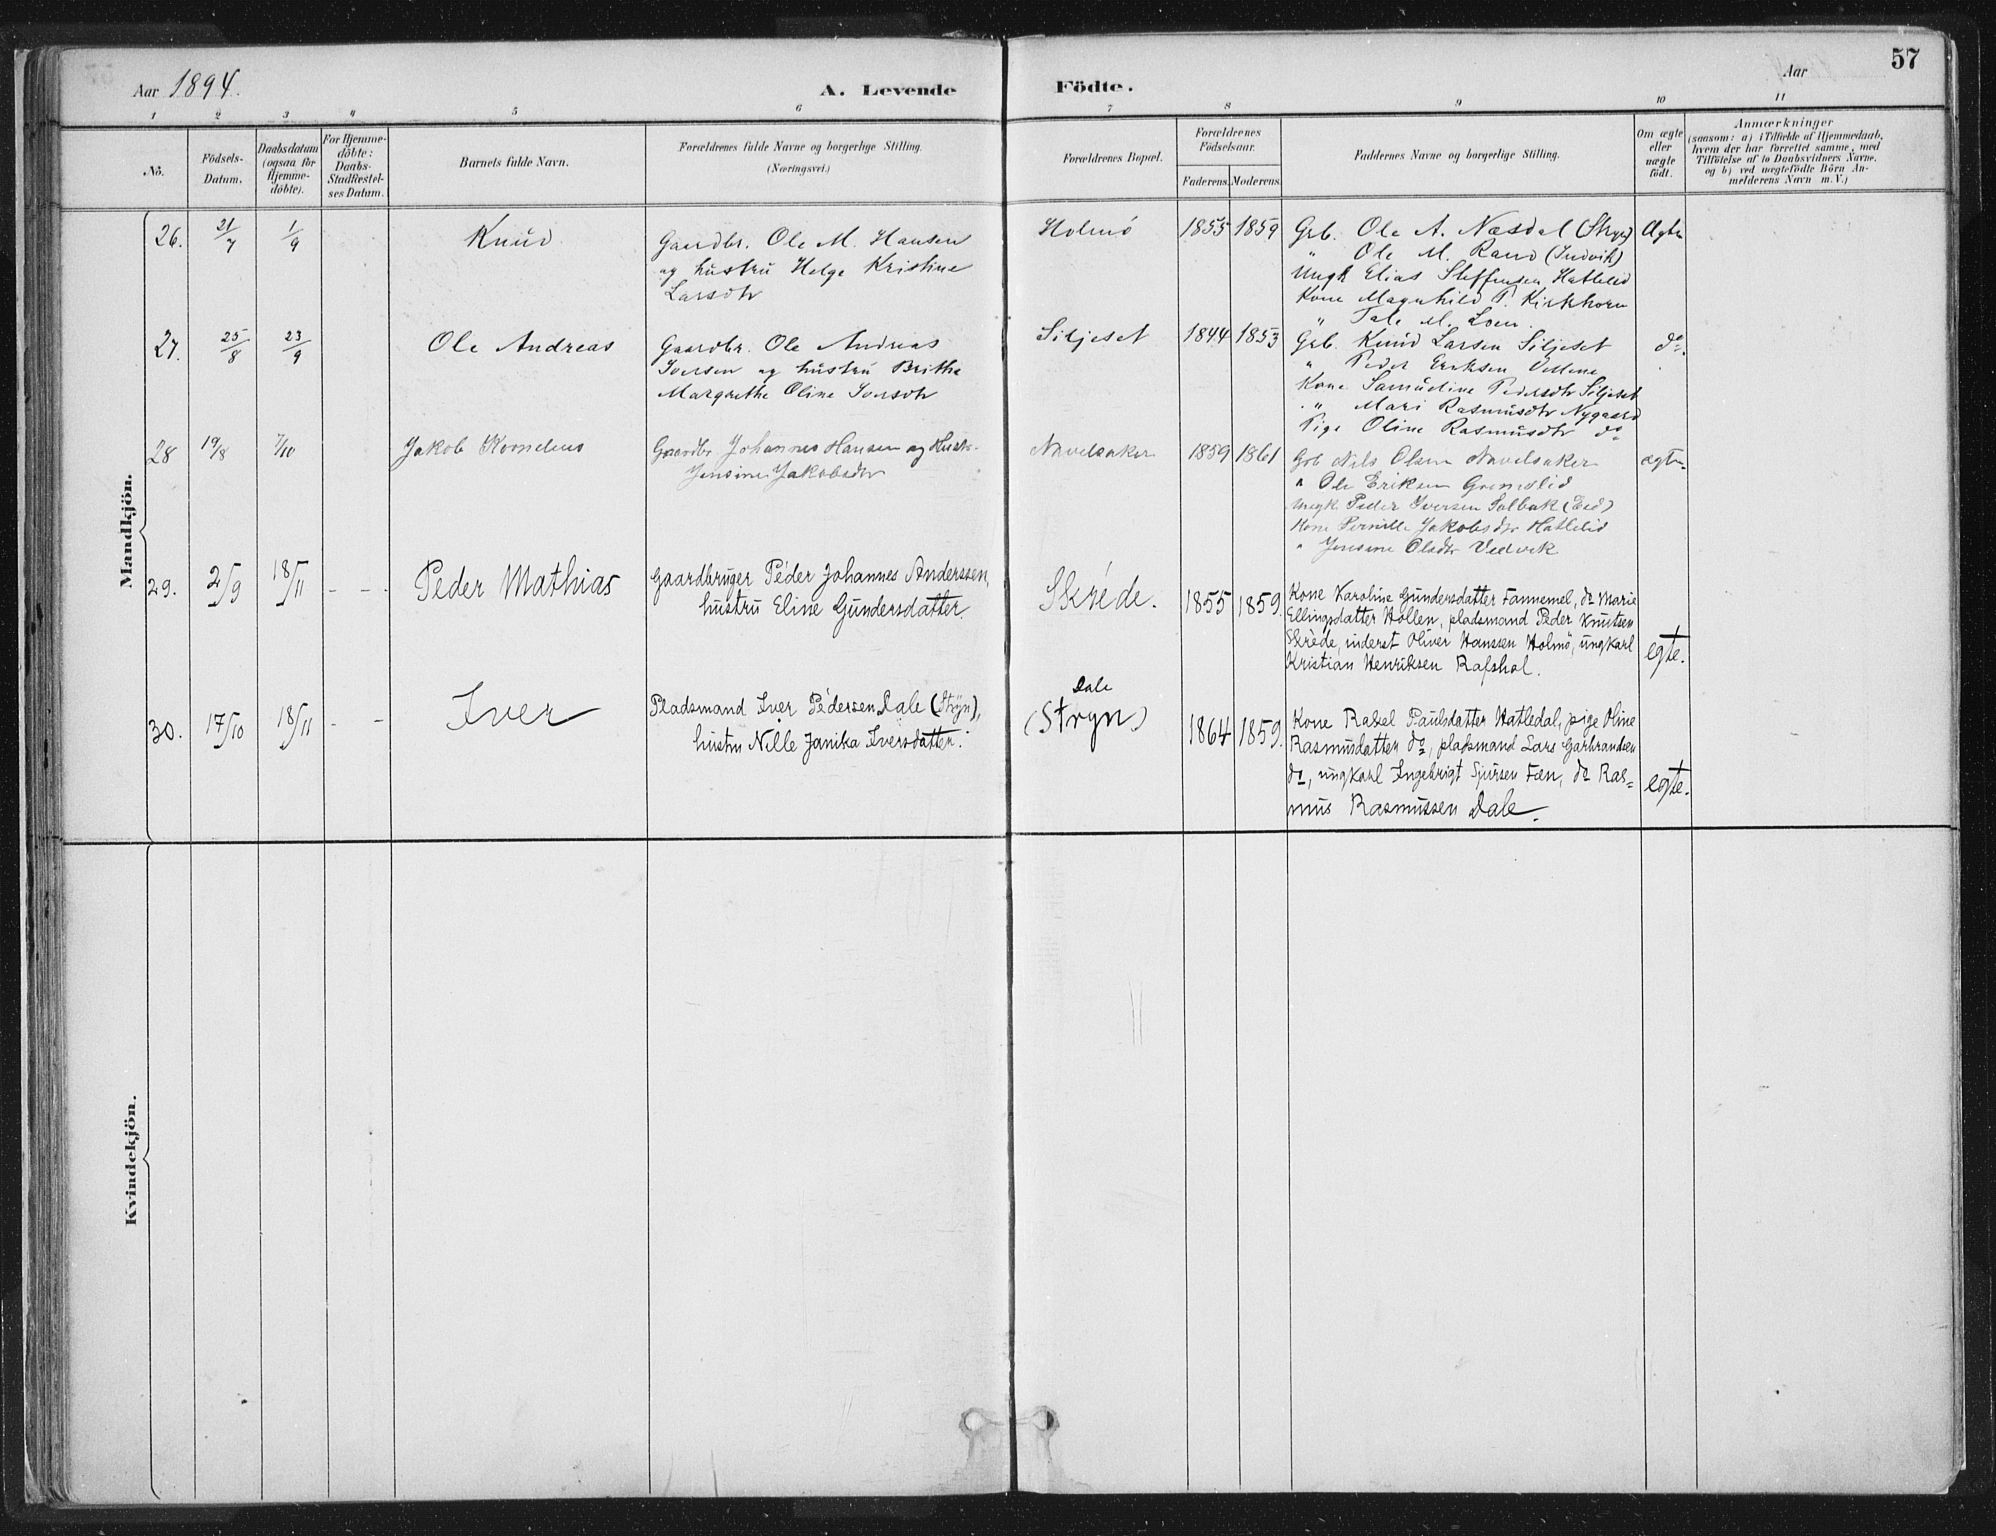 57
Aar 1894. A. Levende Födte. Aar
1 2 3 4 5 6 7 8 9 10 11
No.
Födsels-
Datum.
Daabsdatum
(ogsaa for
Hjemme-
döbte).
For Hjemme-
döbte:
Daabs-
Stadfestel-
ses Datum.
Barnets fulde Navn.
Forældrenes fulde Navne og borgerlige Stilling.
(Næringsvei.)
Forældrenes Bopæl.
Forældrenes
Födselsaar.
Faderens. Moderens.
Faddernes Navne og borgerlige Stilling.
Om ægte
eller
uægte
födt.
Anmærkninger
(saasom: a) i Tilfælde af Hjemmedaab,
hvem der har forrettet samme, med
Tilföielse af to Daabsvidners Navne,
og b) ved uægtefödte Börn An-
melderens Navn m. V.)
Mandkjön.
26. 21/7 1/9 Knud
Gaardbr. Ole M. Hansen
og hustru Helge Kristine
Larsdtr
Holmö 1855 1859
Grb. Ole A. Næsdal (Stryn)
" Ole M. Rand (Indvik)
Ungk Elias Steffensen Hatlelid
Kone Magnhild P. Kirkhorn
" Tale M. Loen.
Ægte
27. 25/8 23/9 Ole Andreas
Gaardbr. Ole Andreas
Iversen og hustru Brithe
Margrethe Oline Iversdtr
Siljeset 1844 1853
Grb. Knud Larsen Siljeset
" Peder Eriksen
Kone Samueline Pedersdtr Siljeset
" Mari Rasmusdtr Nygaard
Pige Oline Rasmusdtr do
do.
28 19/8 7/10 Jakob Kornelius
Gaardbr Johannes Hansen og Hustr.
Jensine Jakobsdtr
Navelsaker 1859 1861
Grb Nils Olsen Navelsaker
" Ole Eriksen Gremslid
Ungk Peder Iversen Solbak (Eid)
Kone Pernille Jakobsdtr Hatlelid
" Jensine Olsdtr Vedvik
ægte.
29. 2/9 18/11 - - - Peder Mathias
Gaardbruger Peder Johannes Anderssen,
hustru Eline Gundersdatter.
Skrede. 1855 1859.
Kone Karoline Gundersdatter Fannemel, do Marie
Ellingsdatter Hollen, pladsmand Peder Knutsen
Skrede, inderst Oliver Hanssen Holmö, ungkarl
Kristian Henriksen Rafshol.
egte.
30. 17/10 18/11 - - Iver
Pladsmand Iver Pedersen Dale (Stryn),
hustru Nille Janika Iversdatter.
Dale
(Stryn) 1864 1859.
Kone Rakel Paulsdatter Hatledal, pige Oline
Rasmusdatter do, pladsmand Lars Garbrandsen
do, ungkarl Ingebrigt Sjursen Fæn, do Ras-
mus Rasmussen Dale.
egte.
Kvindekjön.